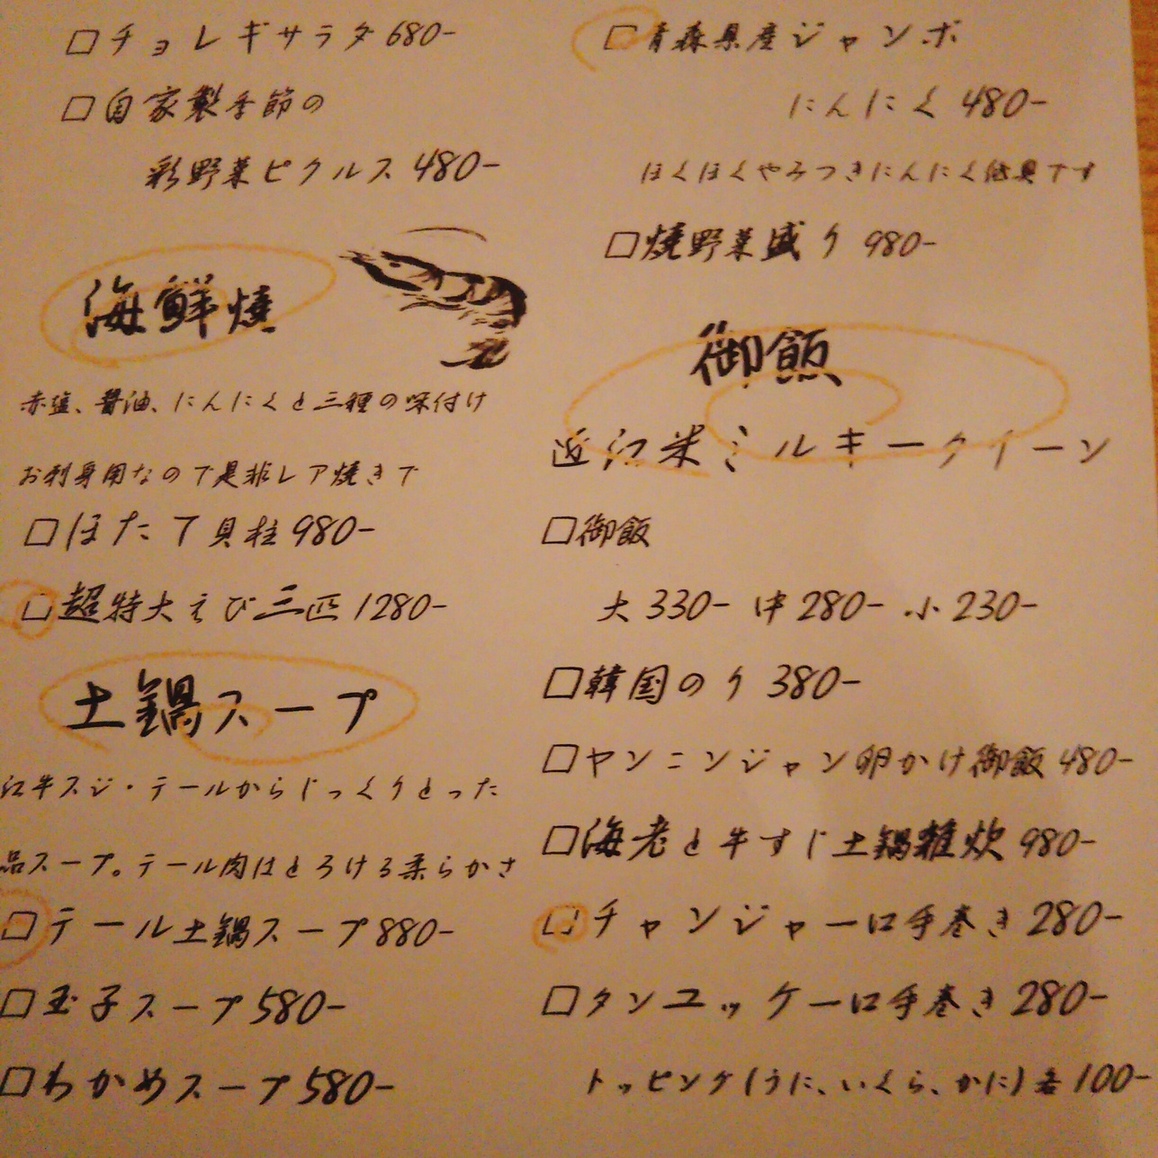 □チョレギサラダ 680-
□自家製季節の
彩野菜ピクルス 480-
海鮮焼
赤塩、醤油、にんにくと三種の味付け
お刺身用なので是非レア焼きで
□ほたて貝柱 980-
□超特大えび三匹 1280-
土鍋スープ
江牛スジ・テールからじっくりとった
品スープ。テール肉はとろける柔らかさ
□テール土鍋スープ 880-
□玉子スープ 580-
□わかめスープ 580-
□青森県産ジャンボ
にんにく 480-
ほくほくやみつきにんにくです
□焼野菜盛り 980-
御飯
近江米ミルキークイーン
□御飯
大 330- 中 280- 小 230-
□韓国のり 380-
□ヤンニンジャン卵かけ御飯 480-
□海老と牛すじ土鍋雑炊 980-
□チャンジャ一口手巻き 280-
□タンユッケ一口手巻き 280-
トッピング(うに、いくら、かに)各 100-